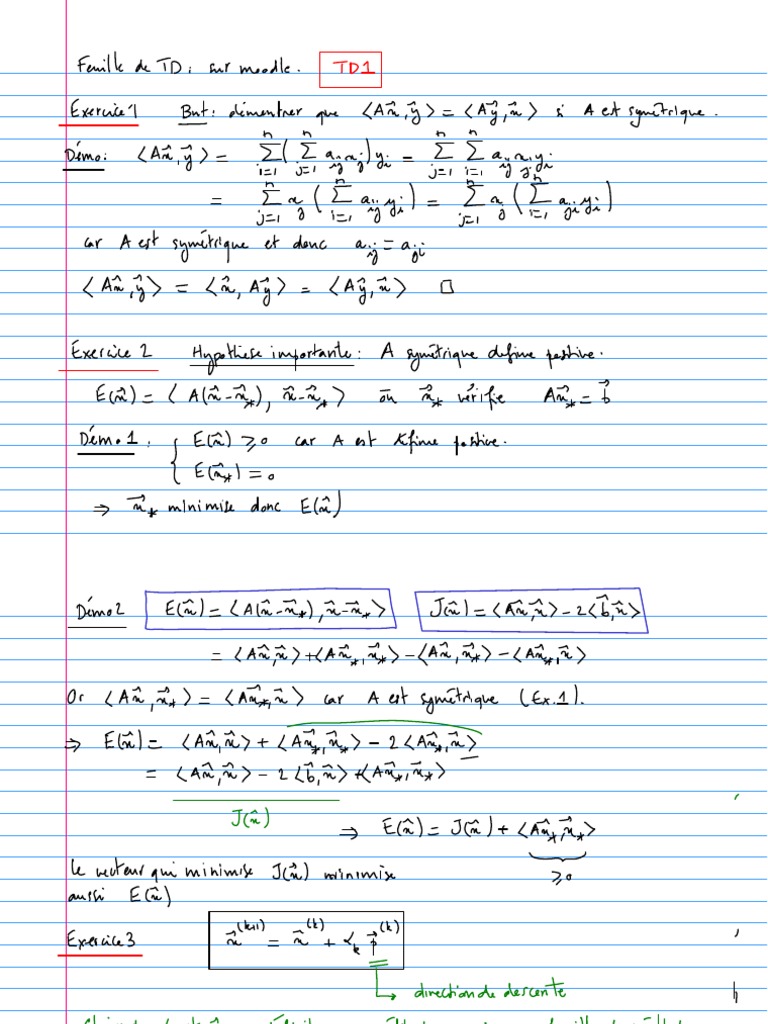 Feuille de TD : sur moodle. TD1
Exercice 1 But : démontrer que ⟨Ax⃗, y⃗⟩ = ⟨Ay⃗, x⃗⟩ si A est symétrique.
Démo : ⟨Ax⃗, y⃗⟩ = ∑_{i=1}^{n} (∑_{j=1}^{n} a_{ij} x_j) y_i = ∑_{j=1}^{n} ∑_{i=1}^{n} a_{ij} x_j y_i
= ∑_{j=1}^{n} x_j (∑_{i=1}^{n} a_{ij} y_i) = ∑_{j=1}^{n} x_j (∑_{i=1}^{n} a_{ji} y_i)
car A est symétrique et donc a_{ij} = a_{ji}
⟨Ax⃗, y⃗⟩ = ⟨x⃗, Ay⃗⟩ = ⟨Ay⃗, x⃗⟩ □
Exercice 2 Hypothèse importante : A symétrique définie positive.
E(x⃗) = ⟨A(x⃗-x⃗_*), x⃗-x⃗_*⟩ où x⃗_* vérifie Ax⃗_* = b⃗
Démo 1 : { E(x⃗) ≥ 0 car A est définie positive.
{ E(x⃗_*) = 0
⇒ x⃗_* minimise donc E(x⃗)
Démo 2 E(x⃗) = ⟨A(x⃗-x⃗_*), x⃗-x⃗_*⟩ J(x⃗) = ⟨Ax⃗, x⃗⟩ - 2⟨b⃗, x⃗⟩
= ⟨Ax⃗, x⃗⟩ + ⟨Ax⃗_*, x⃗_*⟩ - ⟨Ax⃗, x⃗_*⟩ - ⟨Ax⃗_*, x⃗⟩
Or ⟨Ax⃗, x⃗_*⟩ = ⟨Ax⃗_*, x⃗⟩ car A est symétrique (Ex.1).
⇒ E(x⃗) = ⟨Ax⃗, x⃗⟩ + ⟨Ax⃗_*, x⃗_*⟩ - 2⟨Ax⃗_*, x⃗⟩
= ⟨Ax⃗, x⃗⟩ - 2⟨b⃗, x⃗⟩ + ⟨Ax⃗_*, x⃗_*⟩
J(x⃗)
⇒ E(x⃗) = J(x⃗) + ⟨Ax⃗_*, x⃗_*⟩
≥ 0
le vecteur qui minimise J(x⃗) minimise
aussi E(x⃗)
Exercice 3 x⃗^{(k+1)} = x⃗^{(k)} + α_k p⃗^{(k)}
direction de descente